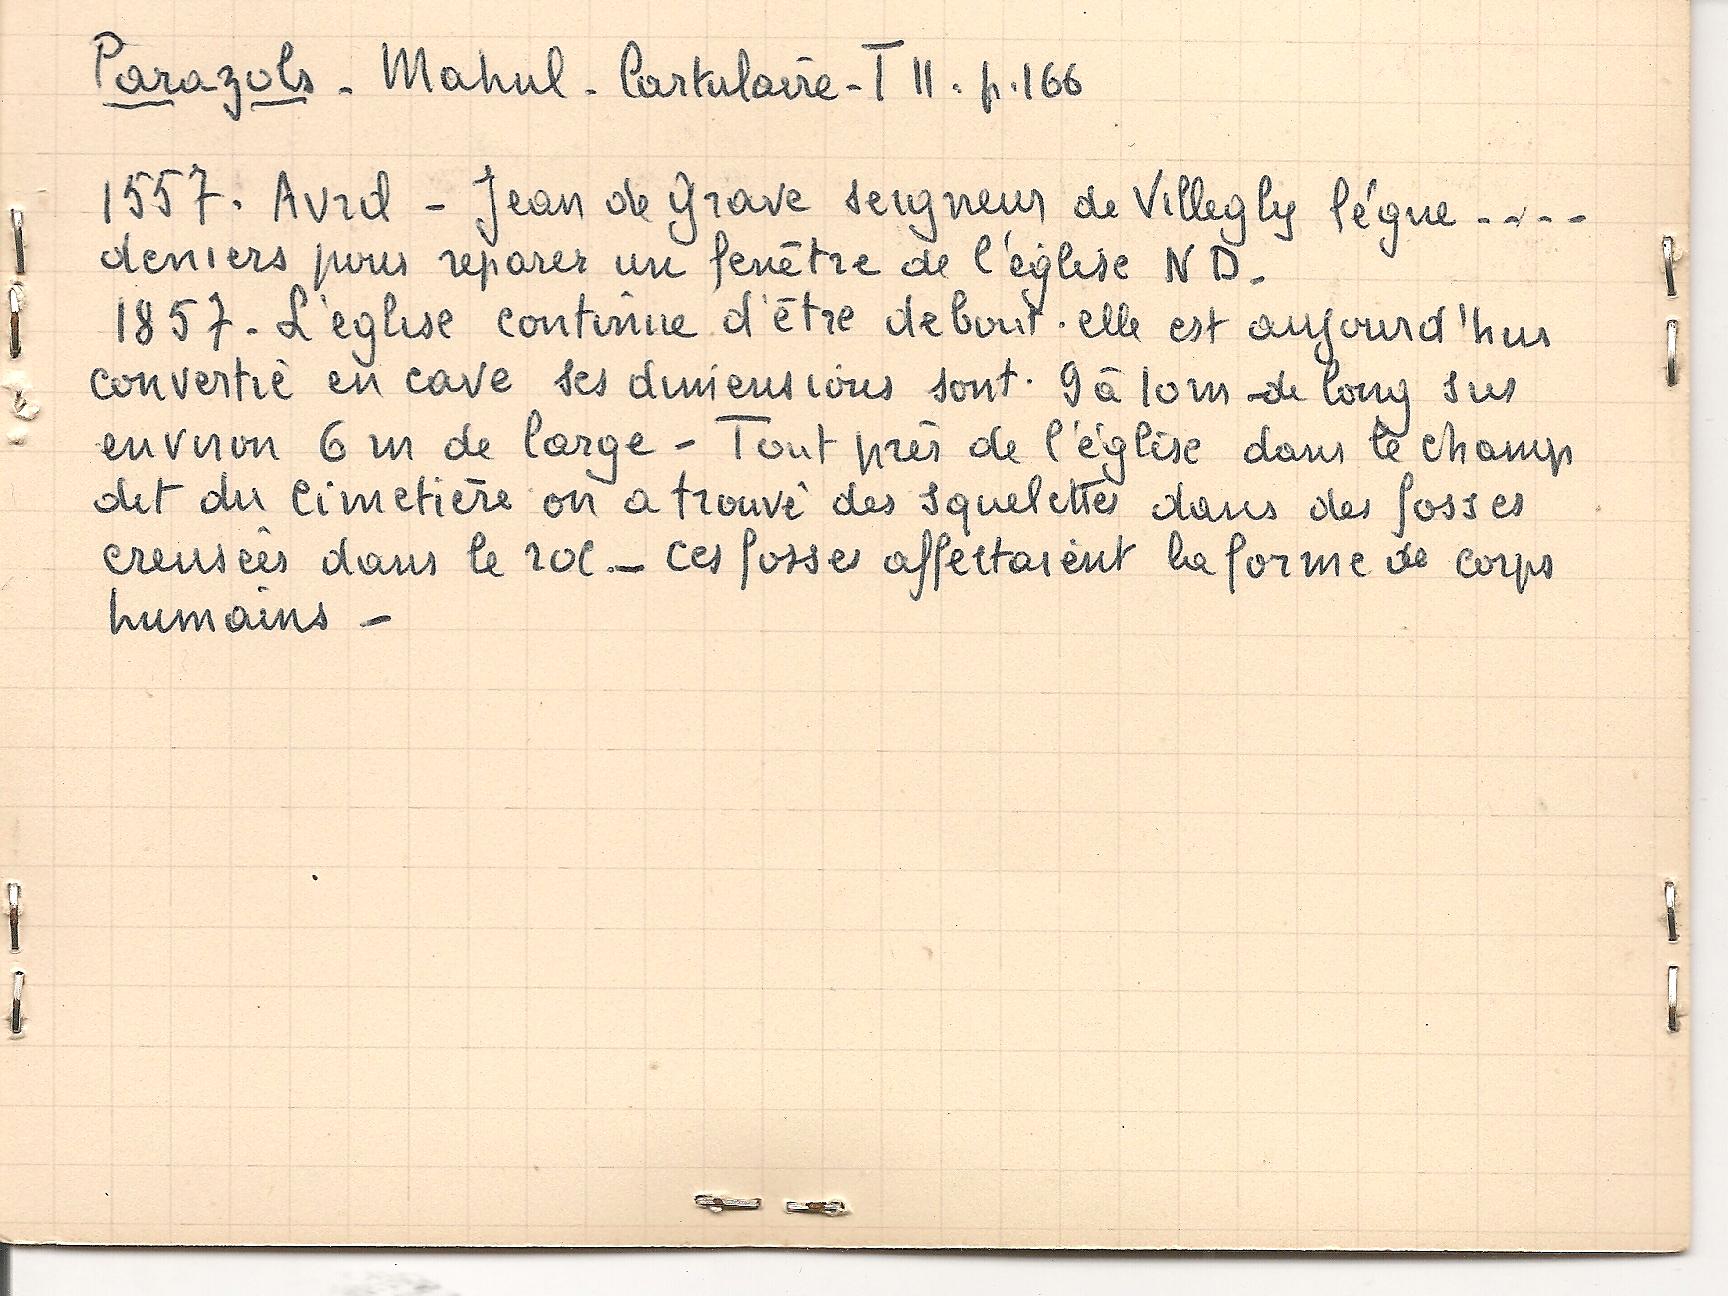 Parazols - Mahul - Cartulaire - T II. p. 166
1557. Avril - Jean de Grave seigneur de Villegly légue -----
deniers pour reparer un fenêtre de l'église N D.
1857. L'église continue d'être debout. elle est aujourd'hui
convertie en cave ses dimensions sont. 9 à 10 m de long sur
environ 6 m de large - Tout près de l'église dans le champ
dit du Cimetière on a trouvé des squelettes dans des fosses
creusées dans le roc. - Ces fosses affectaient la forme de corps
humains -